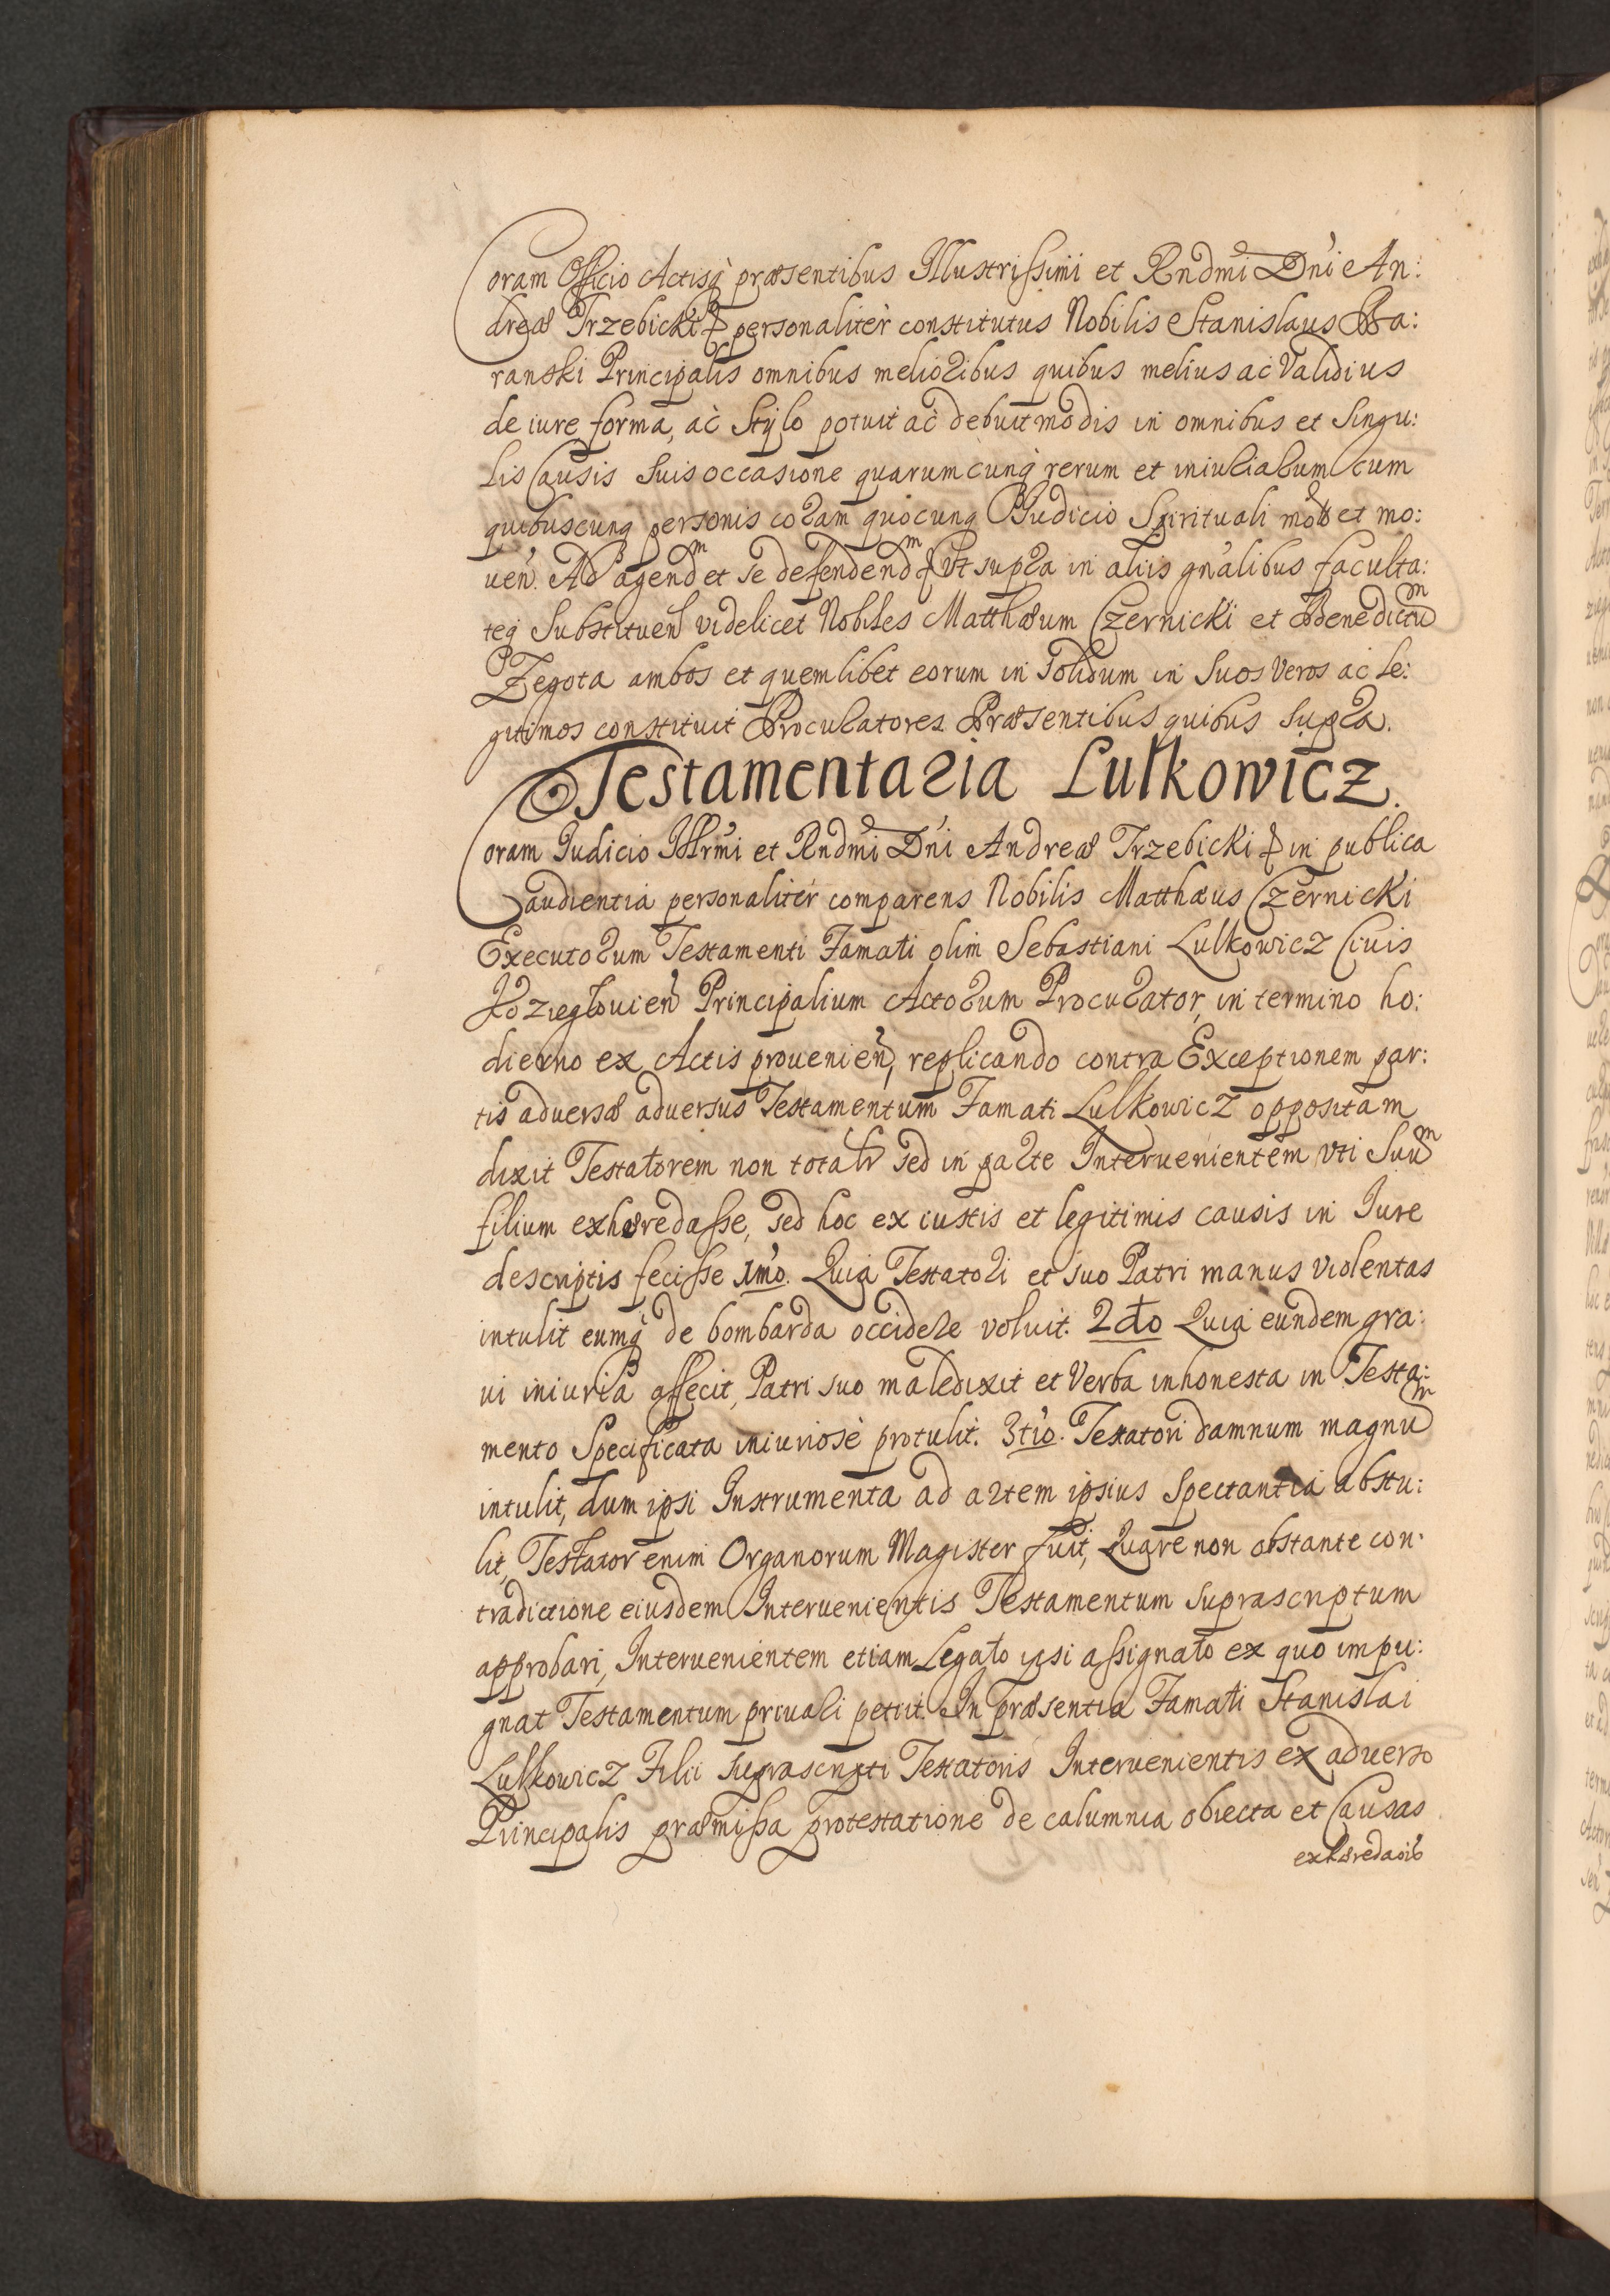 Coram Officio Actisq̀ præsentibus Illustrissimi et Rndmi Dni An:
dreæ Trzebicki & personalitèr constitutus Nobilis Stanislaus Ba:
ranski Principalis omnibus melioribus quibus melius ac validius
de iure forma, ac Stylo potuit ac debuit modis in omnibus et singu:
lis Causis suis occasione quarumcunq̀ rerum et iniuriarum cum
quibuscunq personis coram quocunq Iudicio Spirituali mot et mo:
uen. Ad agendm et se defendendm & vt supra in aliis gnalibus faculta:
teq Substituen videlicet Nobiles Matthæum Czernicki et Benedictũm
Zegota ambos et quemlibet eorum in solidum in suos veros ac le:
gitimos constituit Procuratores. Præsentibus quibus supra.
Testamentaria Lulkowicz.
Coram Iudicio Illrmi et Rndmi Dni Andreæ Trzebicki & in publica
audientia personalitèr comparens Nobilis Matthæus Czernicki
Executorum Testamenti Famati olim Sebastiani Lulkowicz Ciuis
Koziegłouien Principalium Actorum Procurator, in termino ho:
dierno ex Actis prouenien, replicando contra Exceptionem par:
tis aduersæ aduersus Testamentum Famati Lulkowicz oppositam
dixit Testatorem non totalr sed in parte Interuenientem vti suũm
filium exhæredasse, sed hoc ex iustis et legitimis causis in Iure
descriptis fecisse 1mo. Quia Testatori et suo Patri manus violentas
intulit eumq̀ de bombarda occidere voluit. 2do Quia eundem gra:
ui iniuria affecit, Patri suo maledixit et verba inhonesta in Testa:
mento Specificata iniuriosè protulit. 3tio. Testatori damnum magnũm
intulit, dum ipsi Instrumenta ad artem ipsius Spectantia abstu:
lit, Testator enim Organorum Magister fuit, Quare non obstante con:
tradictione eiusdem Interuenientis Testamentum suprascriptum
approbari, Interuenientem etiam Legato ipsi assignato ex quo impu:
gnat Testamentum priuari petiit. In præsentia Famati Stanislai
Lulkowicz Filii suprascripti Testatoris Interuenientis ex aduerso
Principalis præmissa protestatione de calumnia obiecta et Causas